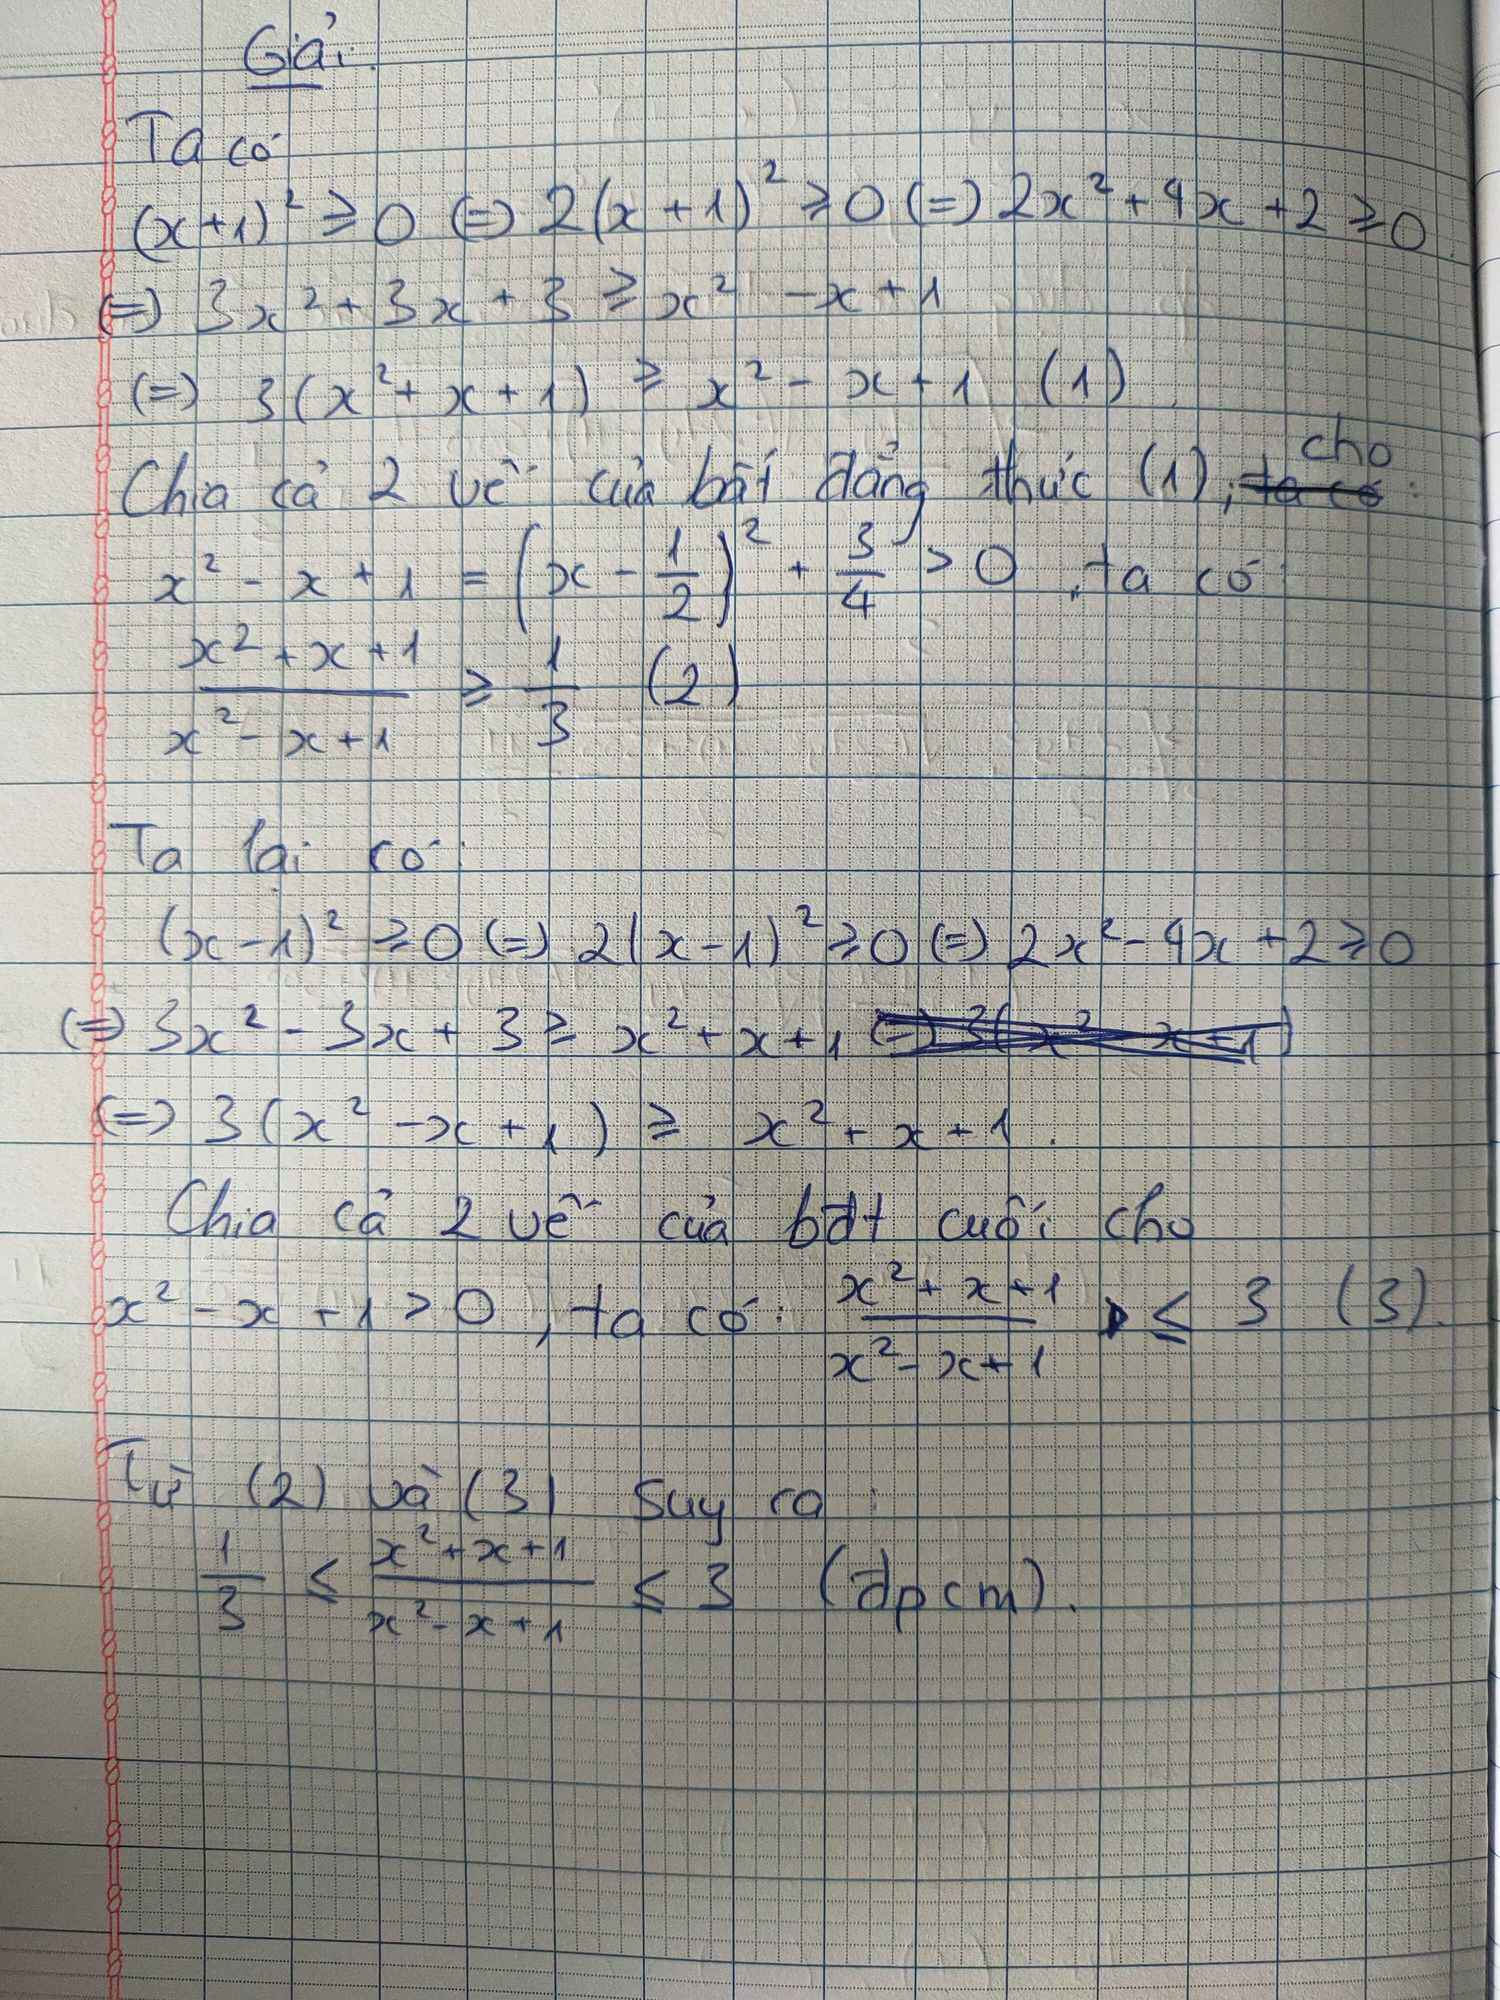 Giải.
Ta có
(x+1)² ≥ 0 (=) 2(x+1)² ≥ 0 (=) 2x² + 4x + 2 ≥ 0
(=) 3x² + 3x + 3 ≥ x² - x + 1
(=) 3(x² + x + 1) ≥ x² - x + 1 (1)
Chia cả 2 vế của bất đẳng thức (1), ta có cho
x² - x + 1 = (x - 1/2)² + 3/4 > 0, ta có:
(x² + x + 1)/(x² - x + 1) ≥ 1/3 (2)
Ta lại có:
(x-1)² ≥ 0 (=) 2(x-1)² ≥ 0 (=) 2x² - 4x + 2 ≥ 0
(=) 3x² - 3x + 3 ≥ x² + x + 1 (=) 3(x² - x + 1)
(=) 3(x² - x + 1) ≥ x² + x + 1.
Chia cả 2 vế của bđt cuối cho
x² - x + 1 > 0, ta có: (x² + x + 1)/(x² - x + 1) ≤ 3 (3).
Từ (2) và (3) suy ra:
1/3 ≤ (x² + x + 1)/(x² - x + 1) ≤ 3 (đpcm).